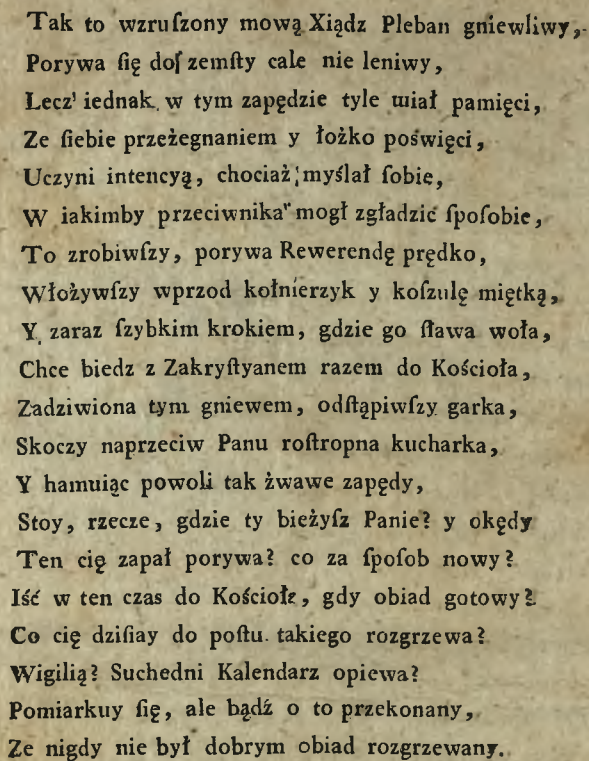 Tak to wzruſzony mową Xiądz Pleban gniewliwy,
Porywa ſię doſ zemſty cale nie leniwy,
Lecz' iednak w tym zapędzie tyle miał pamięci,
Ze ſiebie przeżegnaniem y łożko poświęci,
Uczyni intencyą, chociaż myślał ſobie,
W iakimby przeciwnika mogł zgładzić ſpoſobie,
To zrobiwſzy, porywa Rewerendę prędko,
Włożywſzy wprzod kołnierzyk y koſzulę miętką,
Y zaraz ſzybkim krokiem, gdzie go ſława woła,
Chce biedz z Zakryſtyanem razem do Kościoła,
Zadziwiona tym gniewem, odſtąpiwſzy garka,
Skoczy naprzeciw Panu roſtropna kucharka,
Y hamuiąc powoli tak żwawe zapędy,
Stoy, rzecze, gdzie ty bieżyſz Panie? y okędy
Ten cię zapał porywa? co za ſpoſob nowy?
Iść w ten czas do Kościołł, gdy obiad gotowy?
Co cię dziſiay do poſtu takiego rozgrzewa?
Wigilią? Suchedni Kalendarz opiewa?
Pomiarkuy ſię, ale bądź o to przekonany,
Ze nigdy nie był dobrym obiad rozgrzewany.